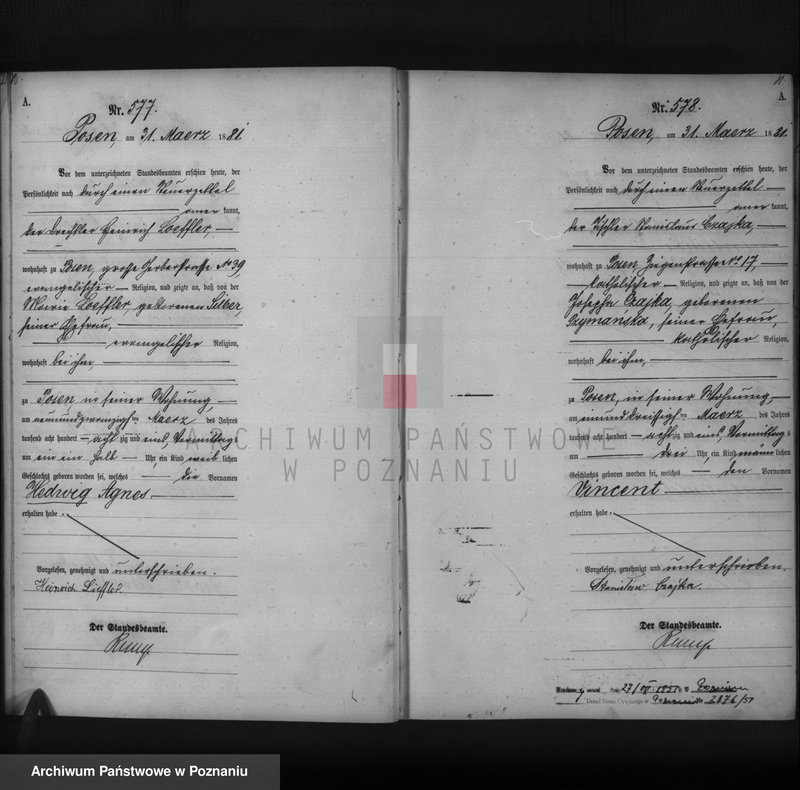 A.
Nr. 577.
Posen, am 31. Maerz 1881.
Vor dem unterzeichneten Standesbeamten erschien heute, der
Persönlichkeit nach durch einen Steuerzettel
anerkannt,
der Drechsler Heinrich Loeffler,
wohnhaft zu Posen, grosse Gerberstrasse No 39
evangelischer Religion, und zeigte an, daß von der
Marie Loeffler, geborenen Silber,
seiner Ehefrau,
evangelischer Religion,
wohnhaft bei ihm,
zu Posen in seiner Wohnung
am neunundzwanzigsten Maerz des Jahres
tausend acht hundert achtzig und eins, Vormittags
um ein ein halb Uhr, ein Kind weiblichen
Geschlechts geboren worden sei, welches die Vornamen
Hedwig Agnes
erhalten habe.
Vorgelesen, genehmigt und unterschrieben.
Heinrich Löffler
Der Standesbeamte.
11.
A.
Nr. 578.
Posen, am 31. Maerz 1881.
Vor dem unterzeichneten Standesbeamten erschien heute, der
Persönlichkeit nach durch einen Steuerzettel
anerkannt,
der Tischler Stanislaus Czajka,
wohnhaft zu Posen, Ziegenstrasse No 17,
katholischer Religion, und zeigte an, daß von der
Josepha Czajka, geborenen
Szymańska, seiner Ehefrau,
katholischer Religion,
wohnhaft bei ihm,
zu Posen, in seiner Wohnung,
am einunddreissigsten Maerz des Jahres
tausend acht hundert achtzig und eins, Vormittags
um drei Uhr, ein Kind männlichen
Geschlechts geboren worden sei, welches den Vornamen
Vincent
erhalten habe.
Vorgelesen, genehmigt und unterschrieben.
Stanisław Czajka.
Der Standesbeamte.
27/VII 1951
Urząd Stanu Cywilnego w 2876/51
ARCHIWUM PAŃSTWOWE
W POZNANIU
Archiwum Państwowe w Poznaniu